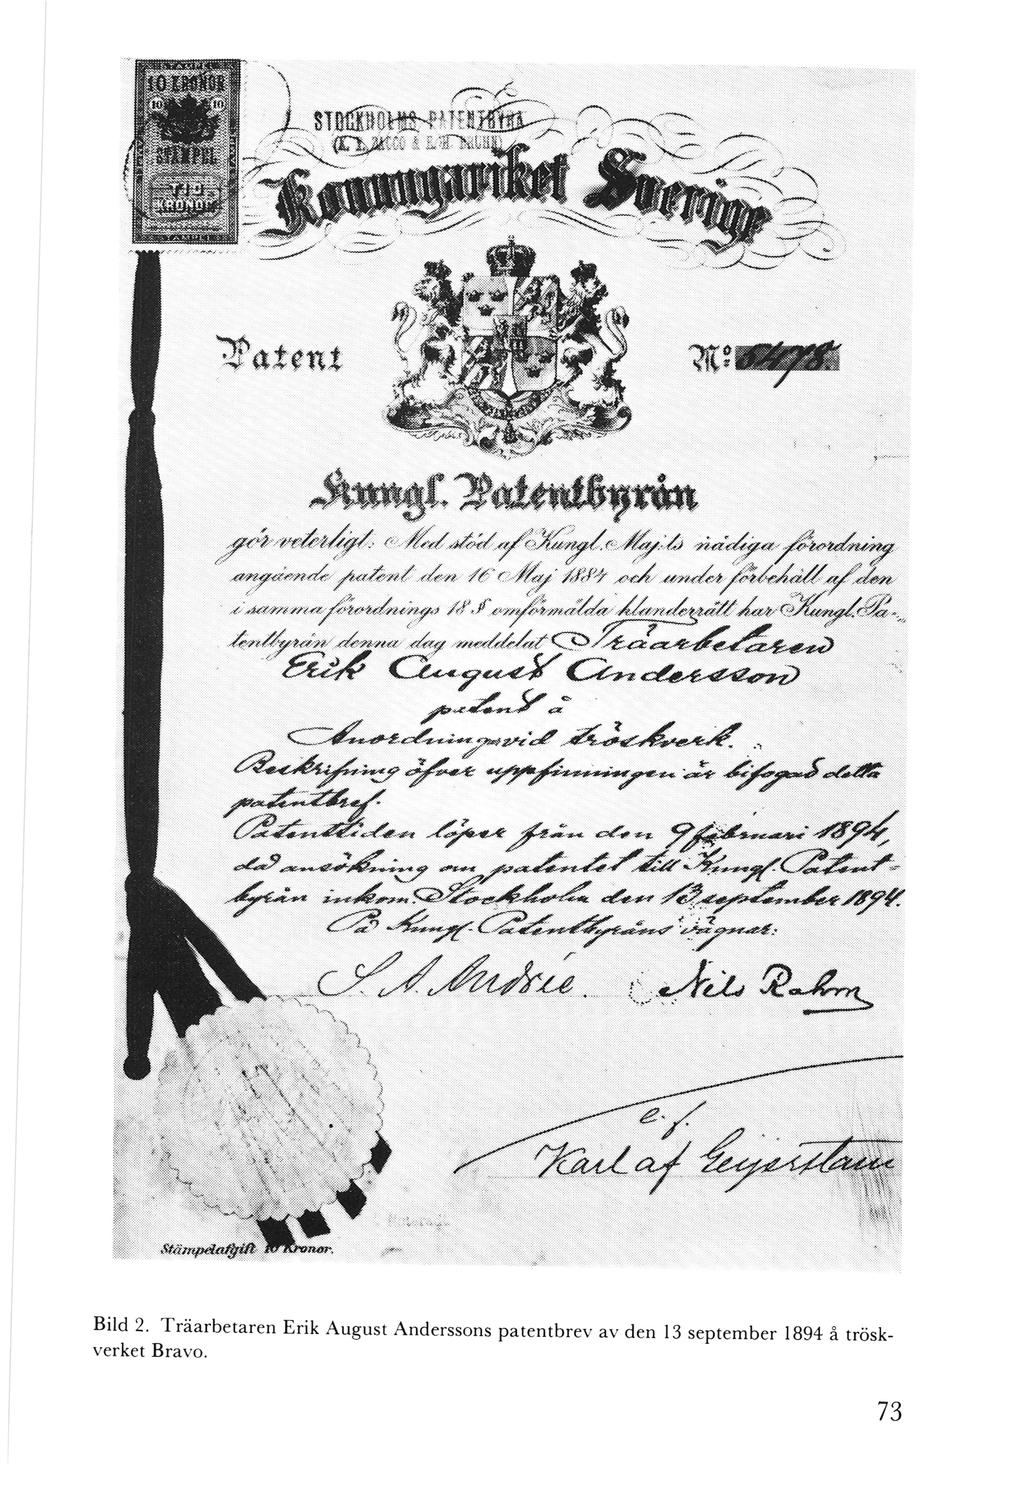 10 KRONOR
10 10
STÄMPEL
TIO
KRONOR
STOCKHOLMS PATENTBYRÅ
(L. A. ZACCO & E. H. BRUHN)
Konungariket Sverige
Patent
Nº 5478.
Kungl. Patentbyrån
gör veterligt: Med stöd af Kungl. Maj:ts nådiga förordning
angående patent den 16 Maj 1884 och under förbehåll af den
i samma förordnings 18 § omförmälda klanderrätt har Kungl. Pa-
tentbyrån denna dag meddelat Träarbetaren
Erik August Andersson
patent å
Anordningar vid tröskverk.
Beskrifning öfver uppfinningen är bifogad detta
patentbref.
Patenttiden löper från den 9 februari 1894,
då ansökning om patentet till Kungl. Patent-
byrån inkom. Stockholm den 13 september 1894.
På Kungl. Patentbyråns vägnar:
S. A. Andrée. Nils Rahm
e. f.
Karl af Geijerstam
Stämpelafgift 10 Kronor.
Bild 2. Träarbetaren Erik August Anderssons patentbrev av den 13 september 1894 å trösk-
verket Bravo.
73